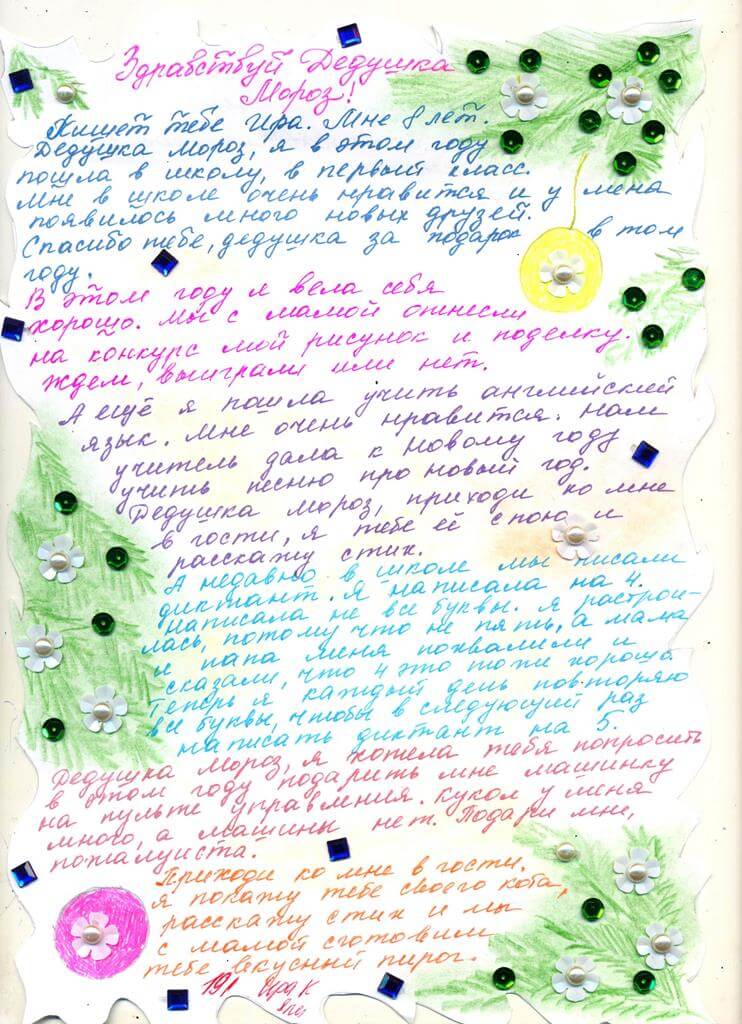 Здравствуй Дедушка
Мороз!
Пишет тебе Ира. Мне 8 лет.
Дедушка Мороз, я в этом году
пошла в школу, в первый класс.
Мне в школе очень нравится и у меня
появилось много новых друзей.
Спасибо тебе, дедушка за подарок в том
году.
В этом году я вела себя
хорошо. Мы с мамой отнесли
на конкурс мой рисунок и поделку.
ждем, выиграли или нет.
А ещё я пошла учить английский
язык. Мне очень нравится. Нам
учитель дала к Новому году
учить песню про Новый год.
Дедушка Мороз, приходи ко мне
в гости, я тебе её спою и
расскажу стих.
А недавно в школе мы писали
диктант. Я написала на 4.
Написала не все буквы. Я расстрои-
лась, потому что не пять, а мама
и папа меня похвалили и
сказали, что 4 это тоже хорошо.
Теперь я каждый день повторяю
все буквы, чтобы в следующий раз
написать диктант на 5.
Дедушка Мороз, я хотела тебя попросить
в этом году подарить мне машинку
на пульте управления. Кукол у меня
много, а машины нет. Подари мне,
пожалуйста.
Приходи ко мне в гости.
Я покажу тебе своего кота,
расскажу стих и мы
с мамой сготовим
тебе вкусный пирог.
191 Ира К